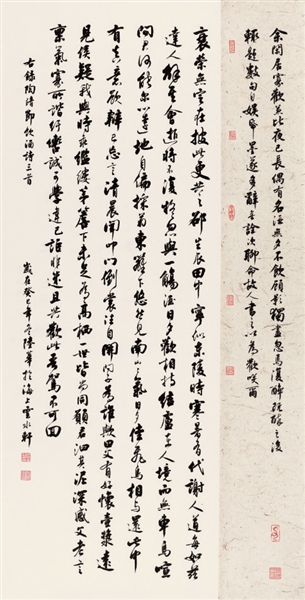 余閒居寡歡兼比夜已長偶有名酒無夕不飲顧影獨盡忽焉復醉既醉之後
輒題數句自娛紙墨遂多辭無詮次聊命故人書之以爲歡笑爾
衰榮無定在彼此更共之邵生瓜田中寧似東陵時寒暑有代謝人道每如茲
達人解其會逝將不復疑忽與一觴酒日夕歡相持結廬在人境而無車馬喧
問君何能爾心遠地自偏採菊東籬下悠然見南山山氣日夕佳飛鳥相與還此中
有真意欲辯已忘言清晨聞叩門倒裳往自開問子爲誰歟田父有好懷壺漿遠
見候疑我與時乖繿縷茅簷下未足爲高栖一世皆尚同願君汩其泥深感父老言
稟氣寡所諧紆轡誠可學違己詎非迷且共歡此飲吾駕不可回
右錄陶靖節飲酒詩三首
歲在癸巳年冬陸華於海上雲水軒